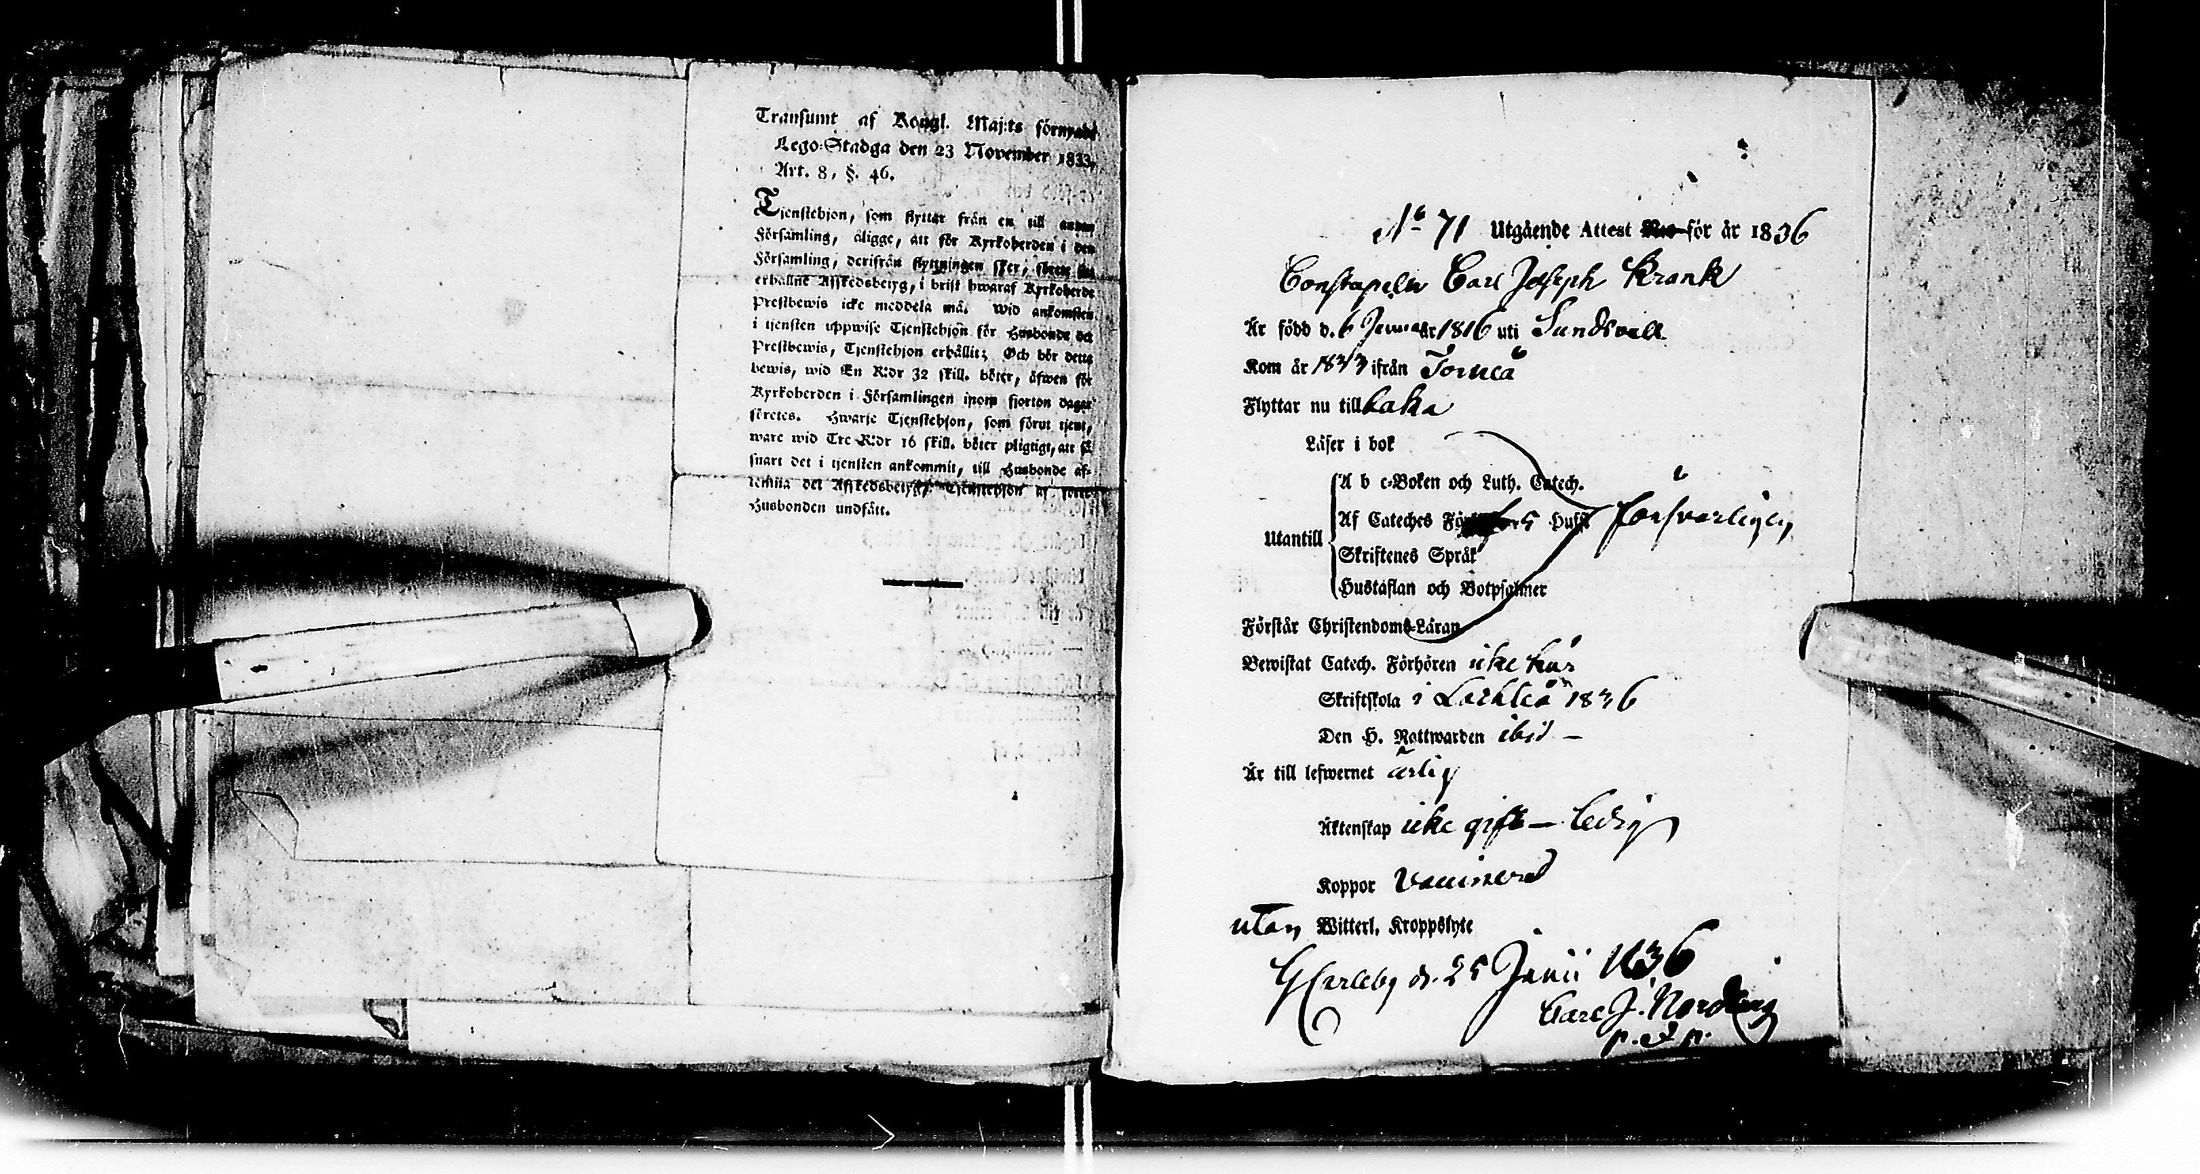 Transumt af Kongl. Maj:ts förnyade
Lego-Stadga den 23 November 1833,
Art. 8, §. 46.
Tjenstehjon, som flyttar från en till annan
Församling, åligge, att för Kyrkoherden i den
Församling, derifrån flyttningen sker, förete sitt
erhållne Afskedsbetyg, i brist hwaraf Kyrkoherde
Prestbewis icke meddela må. Wid ankomsten
i tjensten uppwise Tjenstehjon för Husbonde det
Prestbewis, Tjenstehjon erhållit; Och bör detta
bewis, wid En R:dr 32 skill. böter, äfwen för
Kyrkoherden i Församlingen inom fjorton dagar
företes. Hwarje Tjenstehjon, som förut tjent,
ware wid Tre R:dr 16 skill. böter pligtigt, att så
snart det i tjensten ankommit, till Husbonde af-
lemna det Afskedsbetyg, Tjenstehjon af förra
Husbonden undfått.
No 71 Utgående Attest för år 1836
Constapeln Carl Joseph Krank
Är född d. 6 Januar 1816 uti Sundsvall
Kom år 1833 ifrån Torneå
Flyttar nu till baka
Läser i bok
A b c-Boken och Luth. Catech.
Af Cateches 5 Hufst försvarligen
Utantill
Skriftenes Språk
Hustaflan och Botpsalmer
Förstår Christendoms-Läran
Bewistat Catech. Förhören icke här
Skriftskola i Lochteå 1836
Den H. Nattwarden ibid –
Är till lefwernet ärlig
Äktenskap icke gift – ledig
Koppor Vaccinerad
utan Witterl. Kroppslyte
GCarleby d. 25 Junii 1836
Carl J. Nordling
p. t. p.